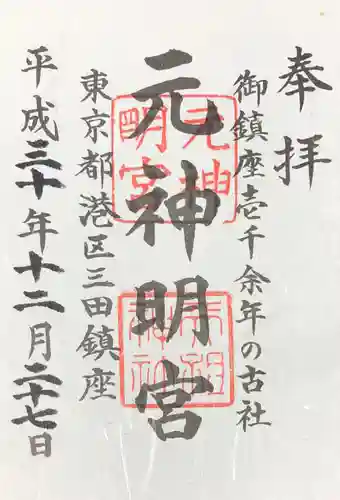 奉拝
御鎮座壱千余年の古社
元神明宮
元神
明宮
東京都港区三田鎮座
平成三十年十二月二十七日